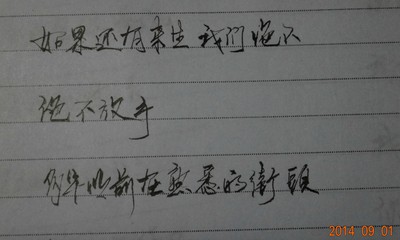 如果还有来生 我们绝不
绝不放手
多年以前在熟悉的街頭
2014 09 01